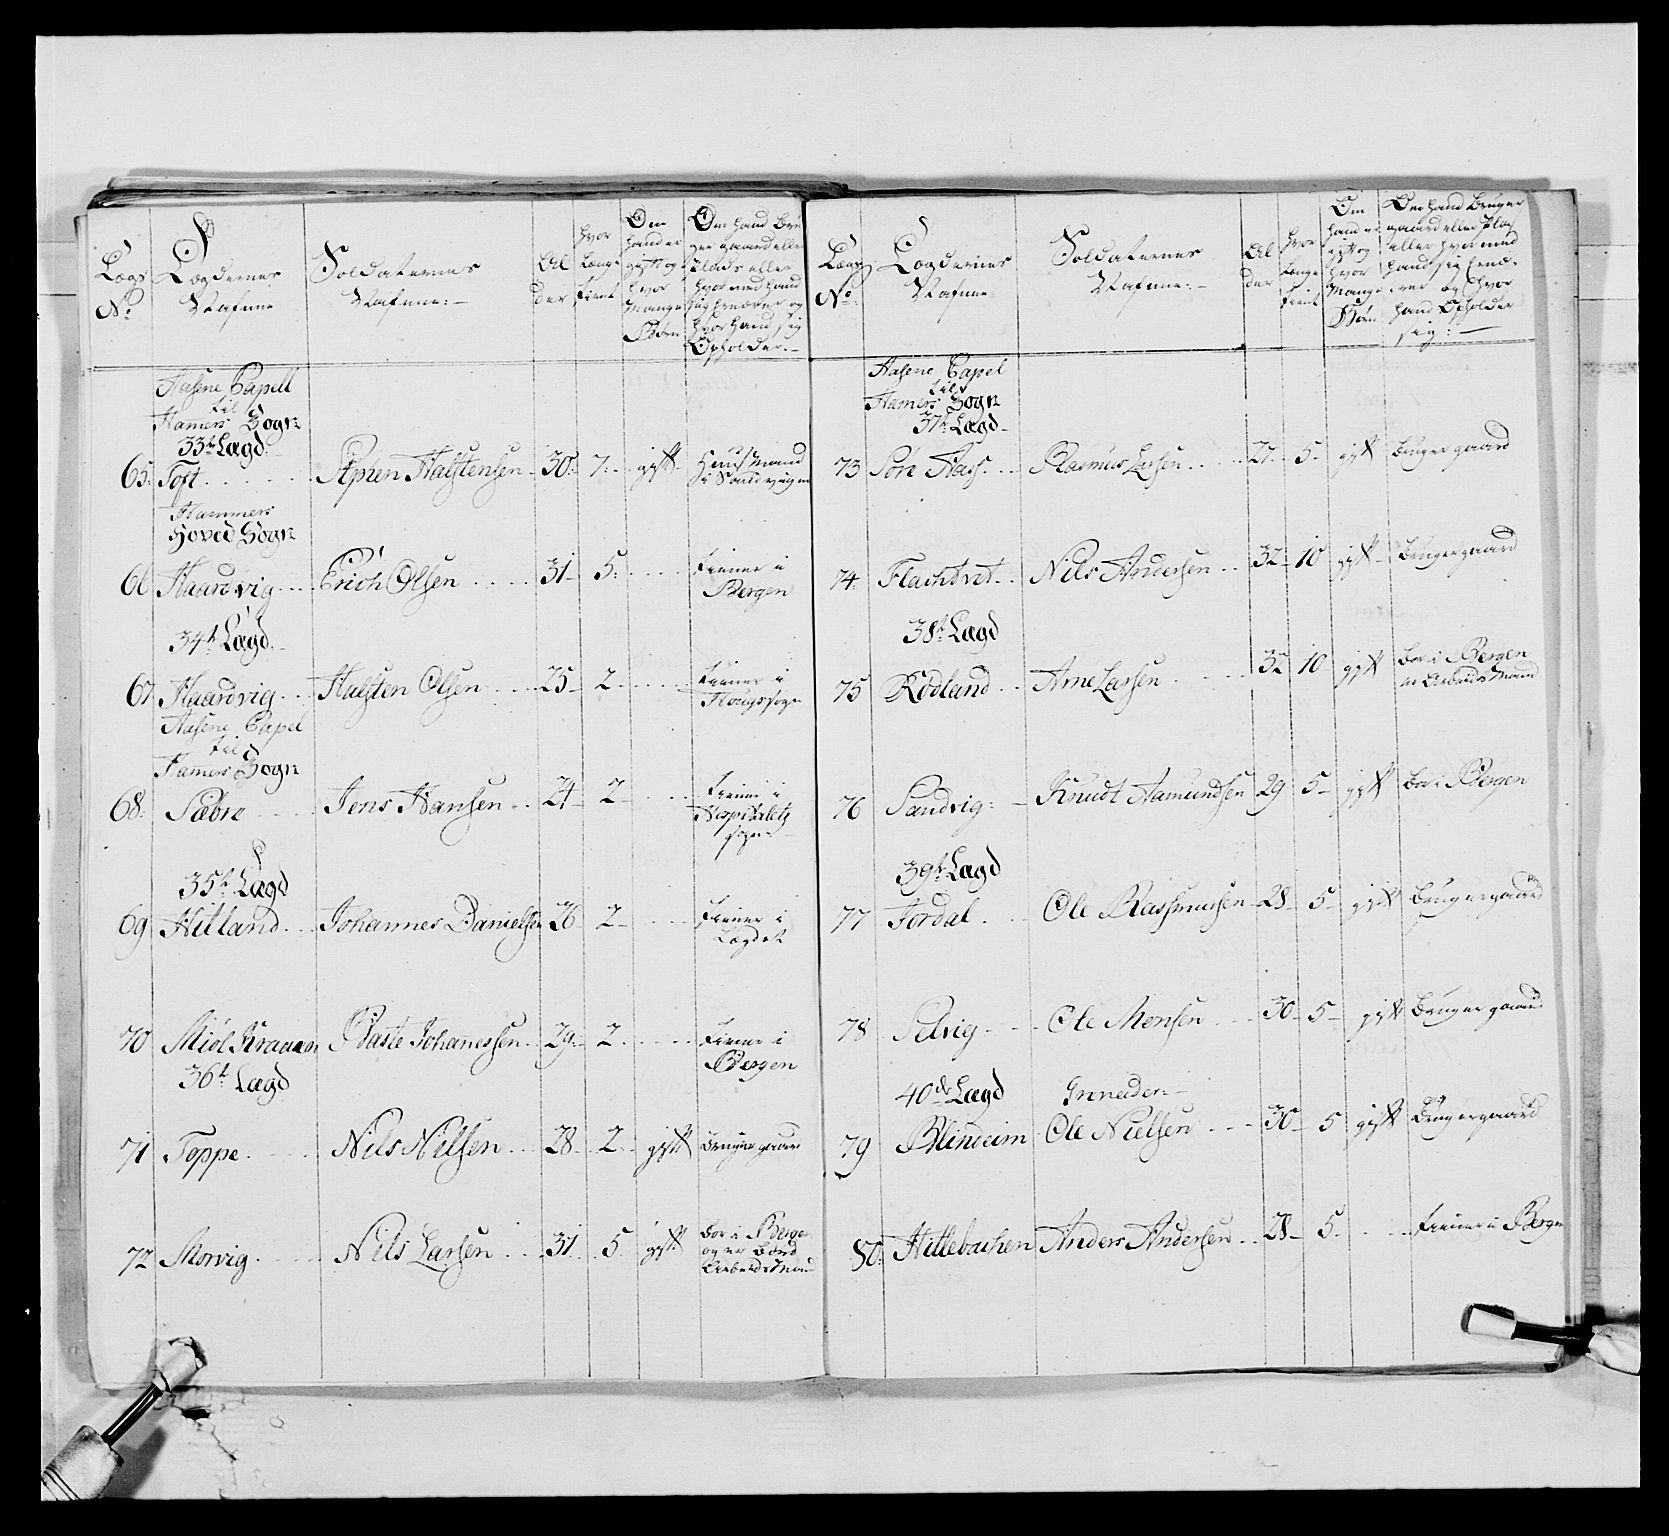 Lægs No
Lægdernes Nafne
Soldaternes Nafne:
Alder
Hvor Længe tient
Om hand er gift og hvor Mange Børn
Om hand Bruger gaard eller Plads eller hvor med hand sig Ernærer og hvor hand sig Opholder.
Aasene Capell
til
Hamers Sogn
33te Lægd.
65. Toft Stphen Halstensen 30. 7. gift HuusMand i Sandvigen
Hammers
Hoved Sogn
66 Haardvig Erich Olsen 31 5. tiener i
Bergen
34te Lægd.
67 Haardvig Halsten Olsen 25 2 tiener i
Hougssogn
Aasene Capel
til
Hamers Sogn
68. Sæbre Jens Hansen 24 2 tiener i
Hospitalets
sogn
35te Lægd
69 Hilland Johannes Danielsen 26 2 tiener i
Lægdet
70 Miøl Kraaen Baste Johanessen 29 2 tiener i
Bergen
36te Lægd
71 Toppe Nils Nilsen 28 2. gift bruger gaard
72 Morvig Nils Larsen 31 5 gift boer i Bergen
og er Bord
ArbeidsMand
Læug No
Lægdernes Nafne
Soldaternes Nafne:
Alder
Hvor Længe tient
Om hand er gift og hvor Mange Børn
Om hand Bruger gaard eller Plads eller hvor med hand sig Ernærer og hvor hand Opholder sig:
Aasene Capel
til
Hamers Sogn
37te Lægd
73 Søre Aass Rasmus Larsen 27 5 gift bruger gaard
74. Flachtvt Nils Andersen 32 10 gift bruger gaard
38te Lægd
75 Rødland Arne Larsen 32 10 gift boer i Bergen
er ArbeidsMand
76 Sandvig Knudt Aamundsen 29 5 gift boer i Bergen
39te Lægd
77 Tordal Ole Rassmusen 28 5 gift bruger gaard
78 Selvig Ole Monsen 30 5 gift bruger gaard
40de Lægd
79 Blindeim Ole Nielsen 30 5 gift bruger gaard
80 Hillebachen Anders Andersen 28 5. tiener i Bergen